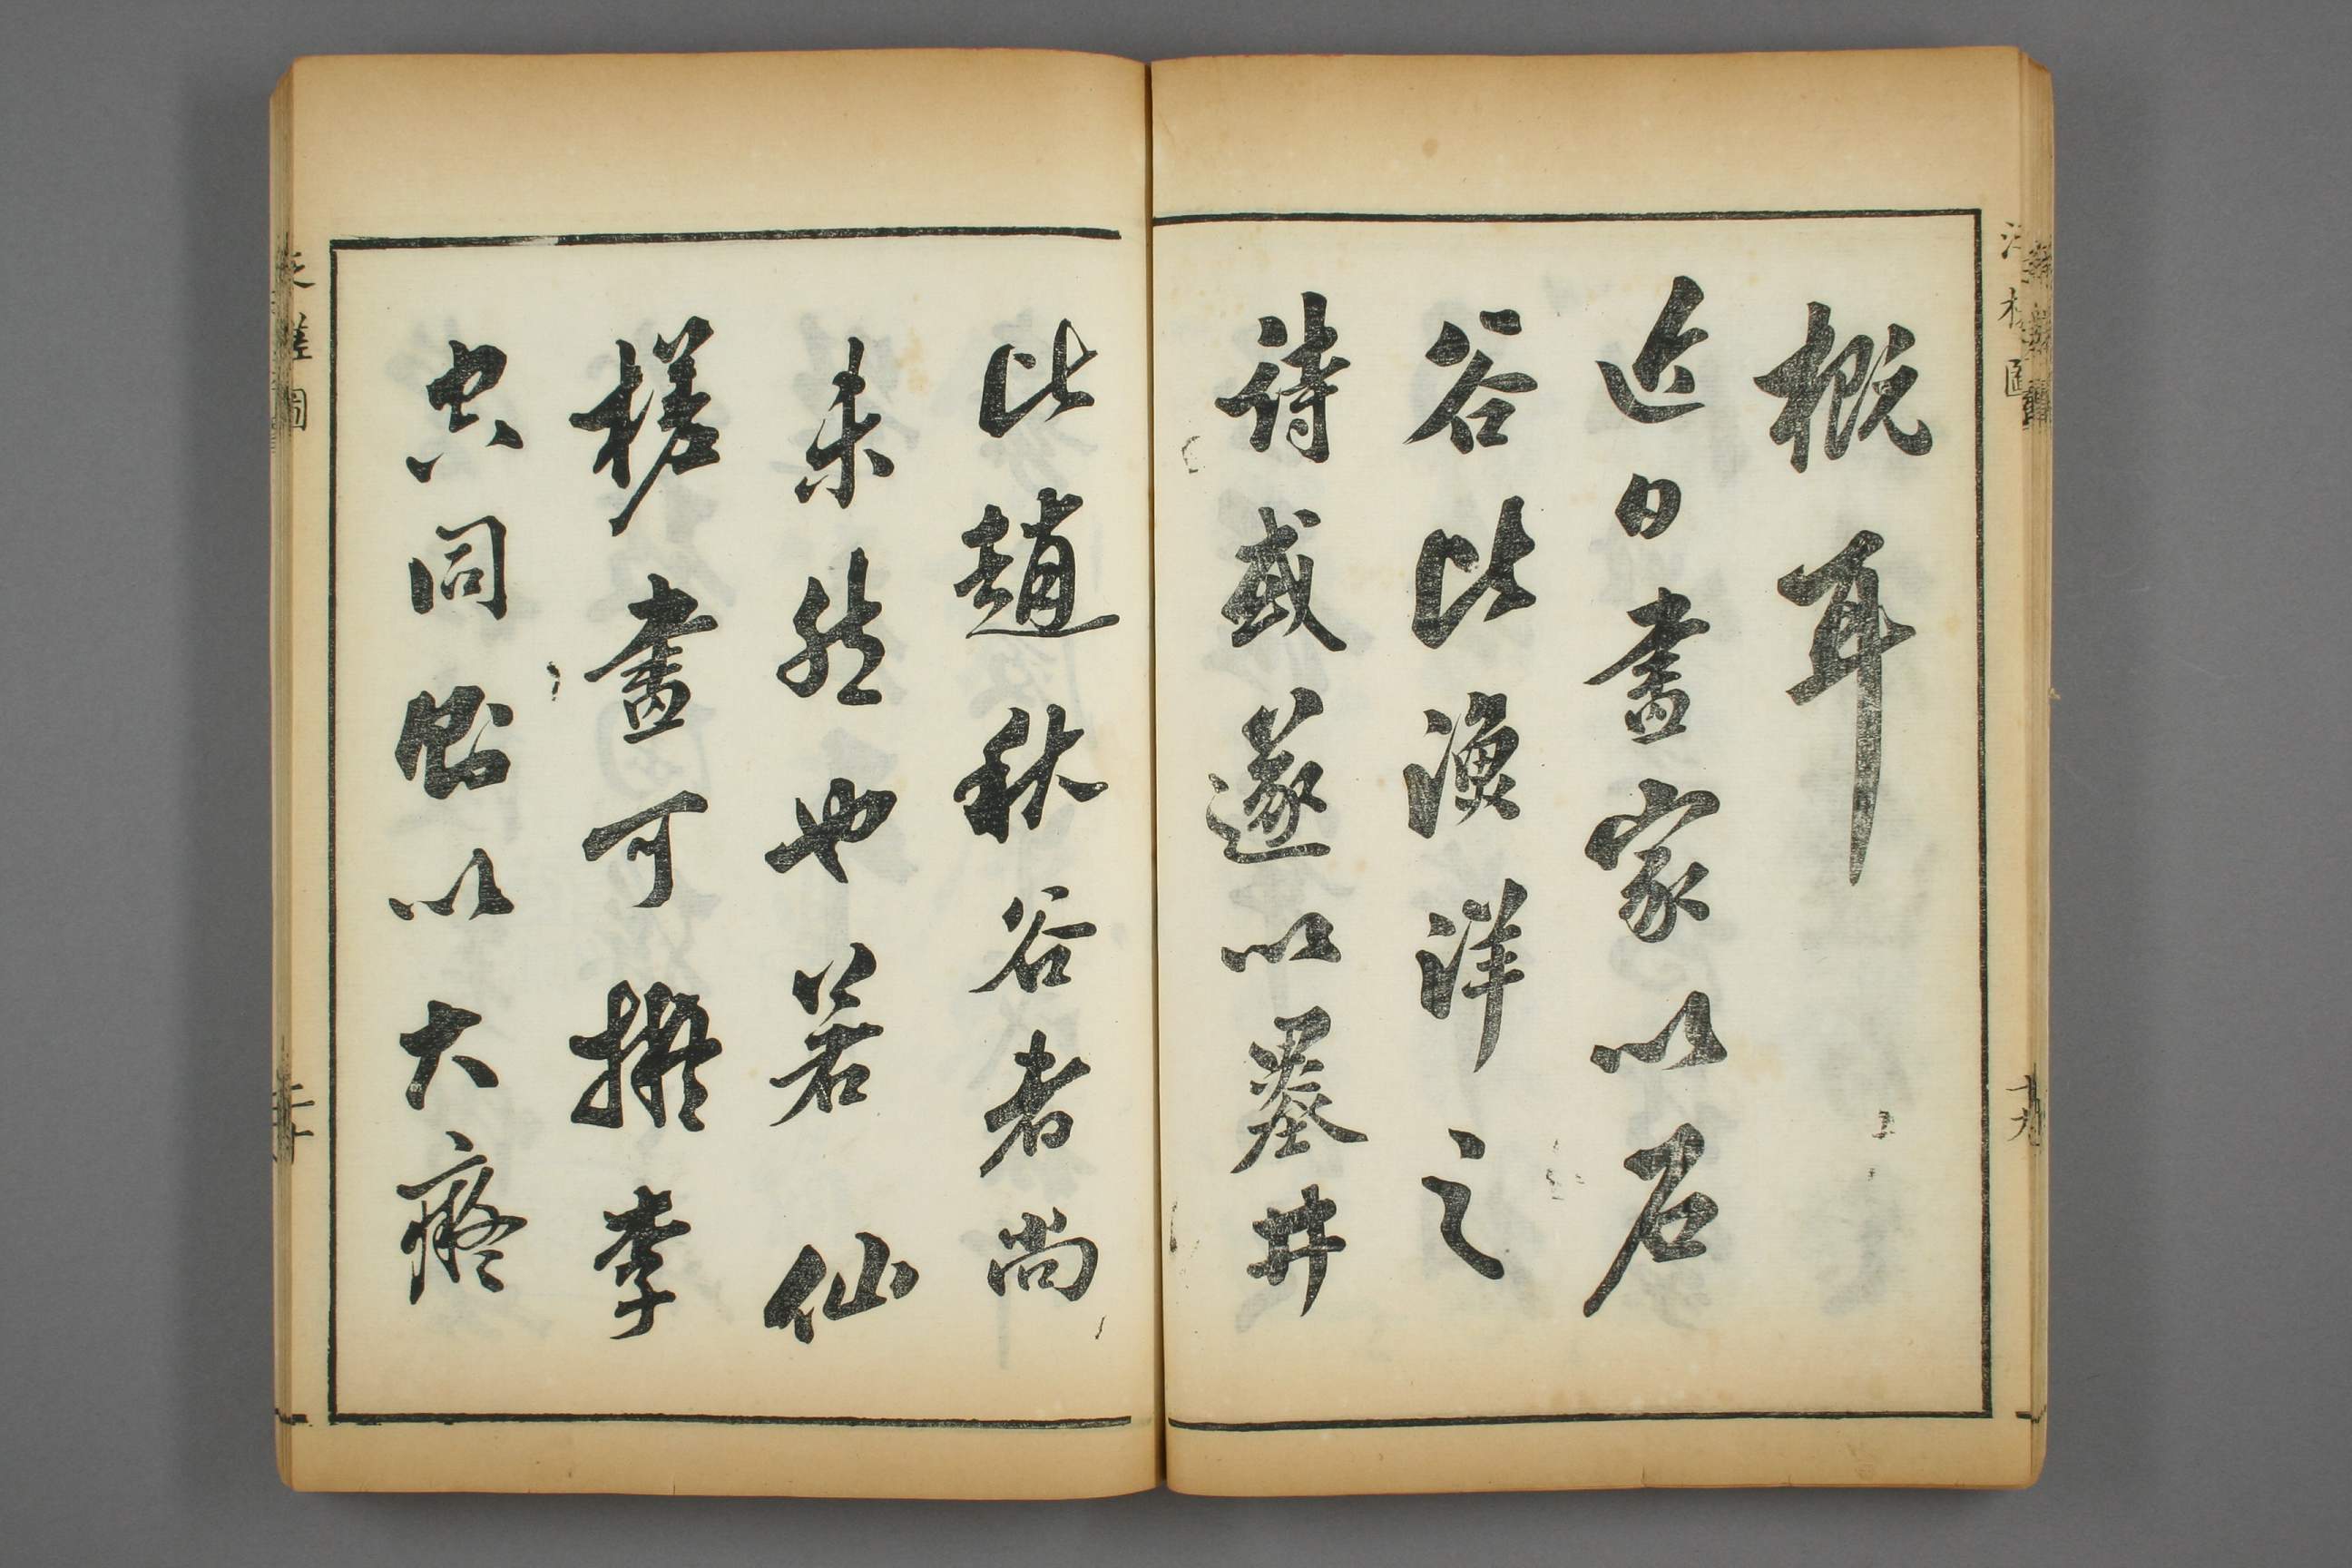 概耳
近日畫家以石
谷比漁洋之
詩或遂以墨井
比趙秋谷者尚
未然也若仙
槎畫可擬李
空同則以大癡
槎圖
十九
二十